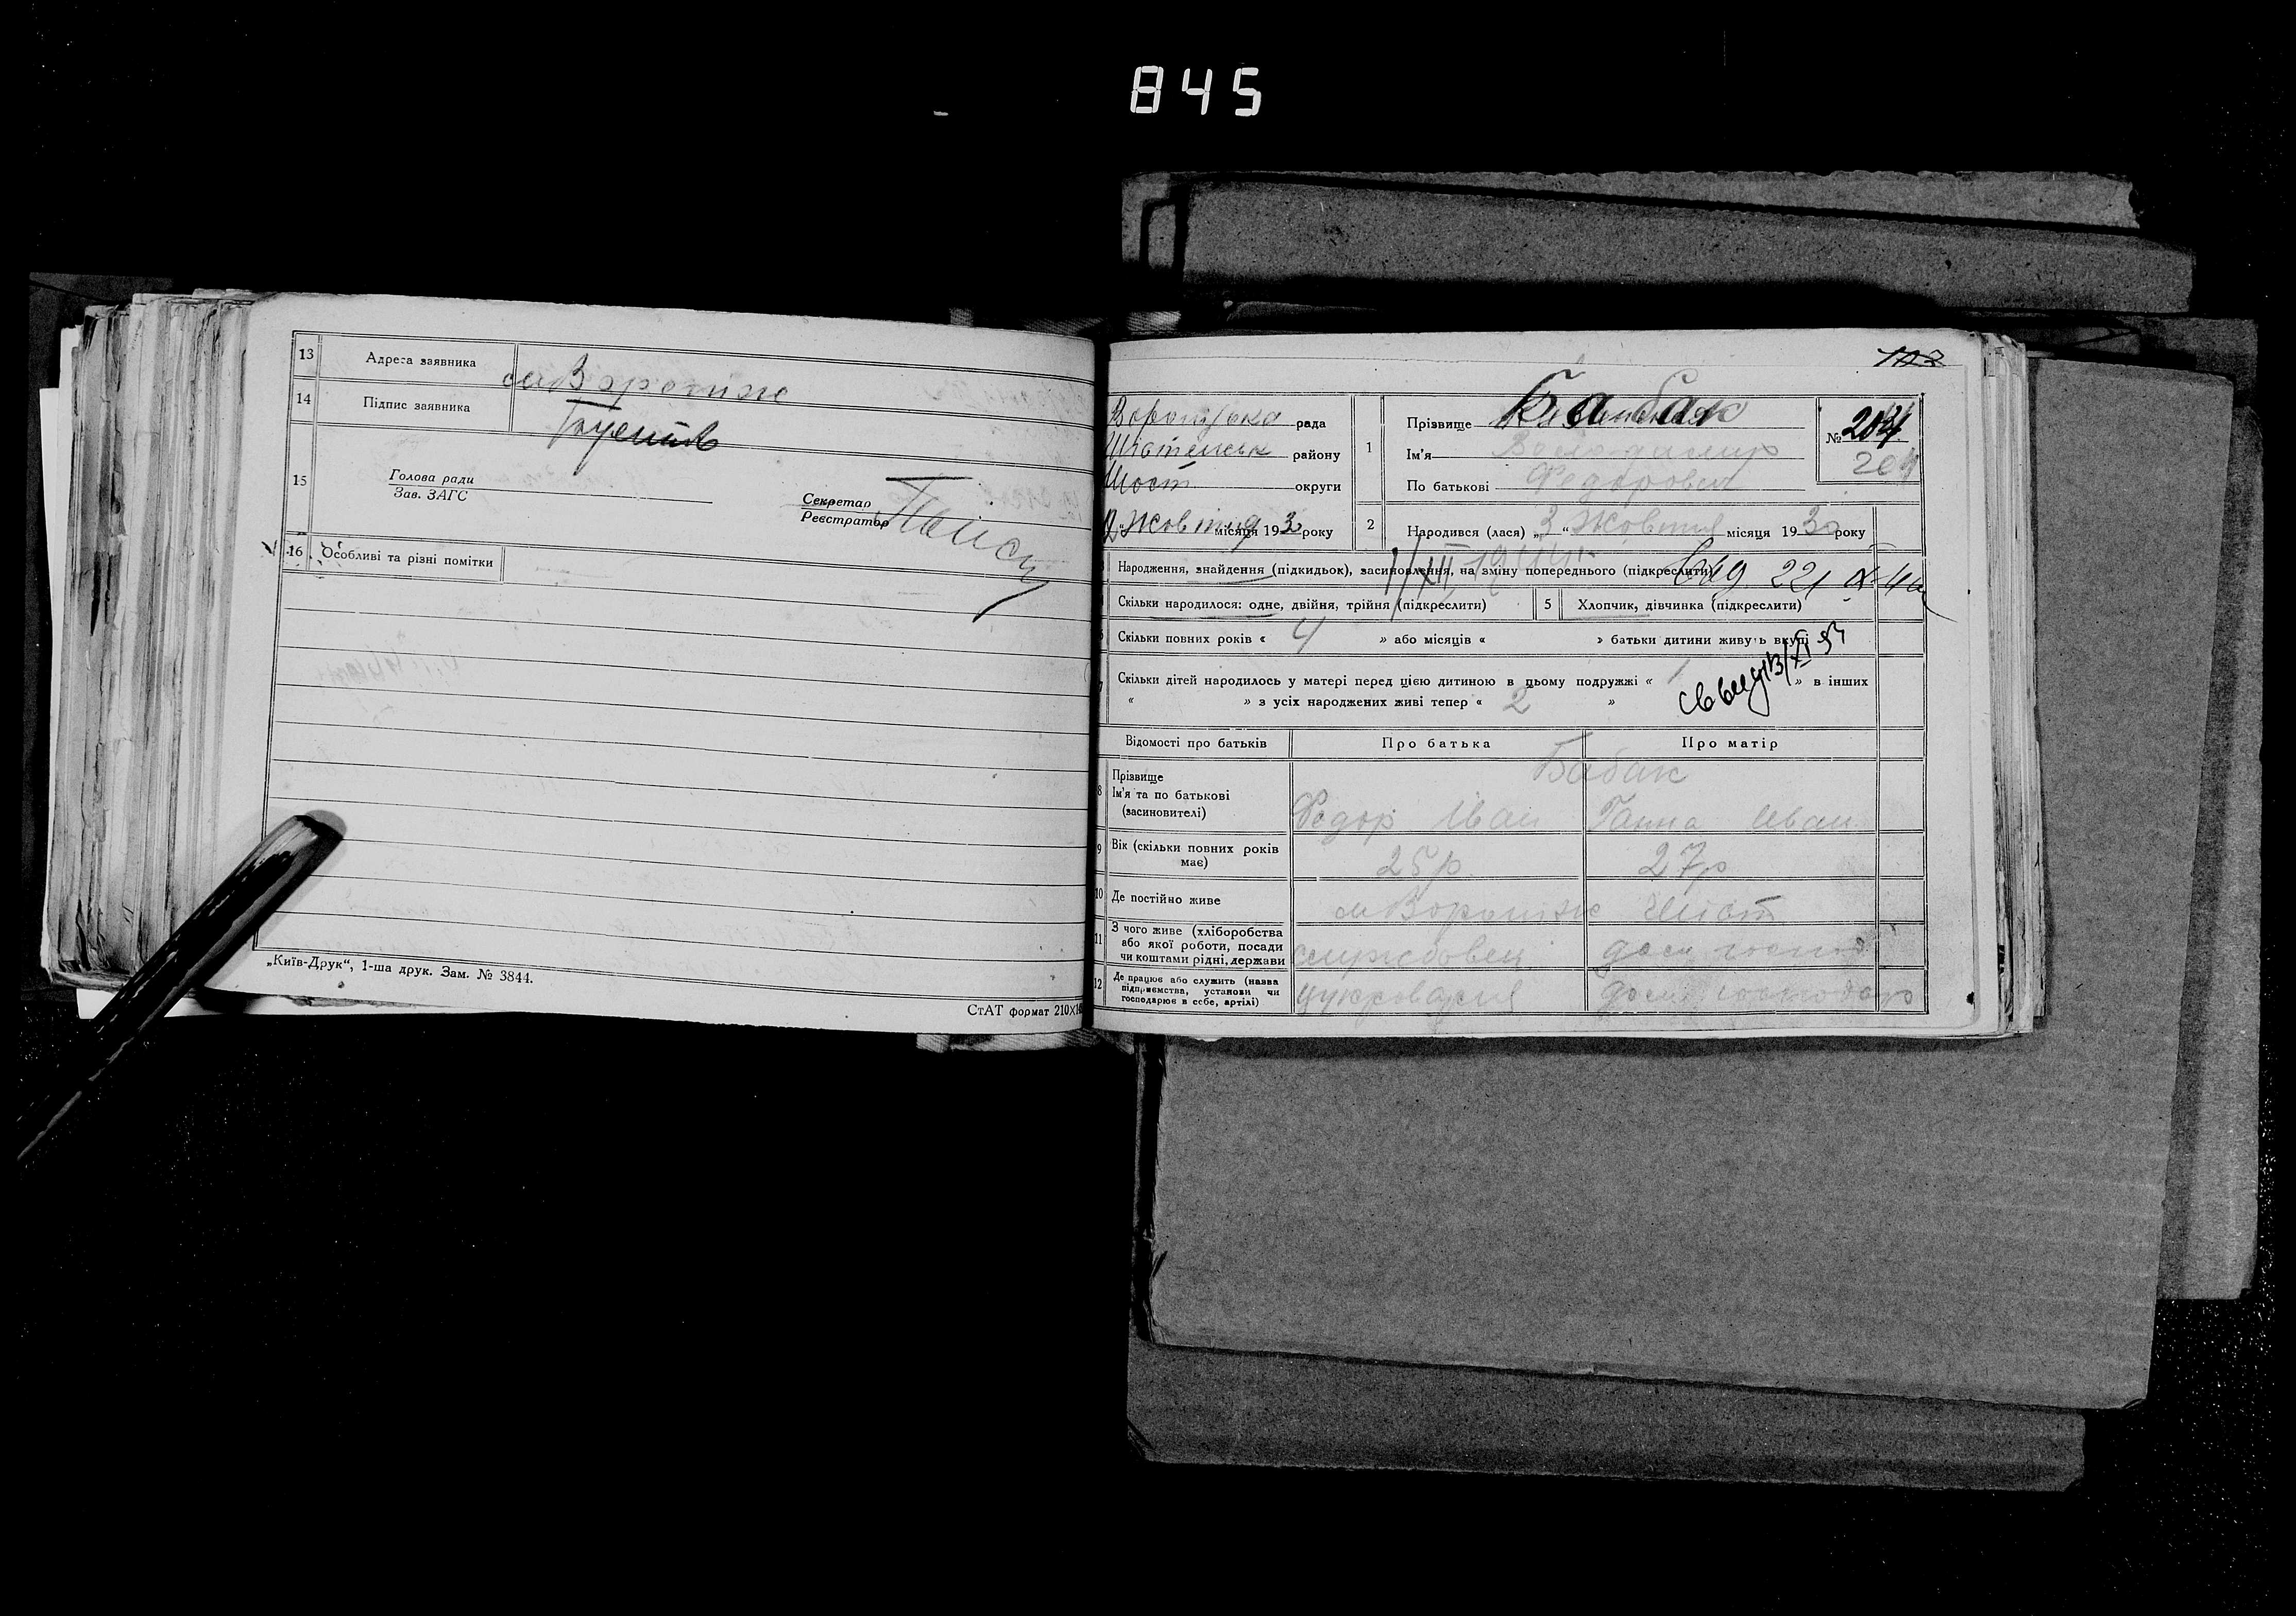 845
13 Адреса заявника см Вороніж
14 Підпис заявника
15 Голова ради
Зав. ЗАГС
Секретар
Реєстратор
16 Особливі та різні помітки
„Київ-Друк“, 1-ша друк. Зам. № 3844.
СтАТ формат 210×1
рада
району
Шост округи
Жовтня місяця 1930 року
1 Прізвище Бабак
Ім'я Володимир
По батькові Федорович
№ 204
204
2 Народився (лася) „3“ Жовтня місяця 1930 року
Народження, знайдення (підкидьок), засиновлення, на зміну попереднього (підкреслити)
Скільки народилося: одне, двійня, трійня (підкреслити)
5 Хлопчик, дівчинка (підкреслити)
Скільки повних років « 4 » або місяців « » батьки дитини живуть вкупі
Скільки дітей народилось у матері перед цією дитиною в цьому подружжі « 1 » в інших
« » з усіх народжених живі тепер « 2 »
Відомості про батьків Про батька Про матір
8 Прізвище Бабак
Ім'я та по батькові Федор Іван Ганна Иван
(засиновителі)
9 Вік (скільки повних років має) 25р. 27р
10 Де постійно живе см Вороніж Шост
11 З чого живе (хліборобства
або якої роботи, посади
чи коштами рідні, держави
службовец дом господ
12 Де працює або служить (назва
підприємства, установи чи
господарює в себе, артілі)
цукроварня дом господар